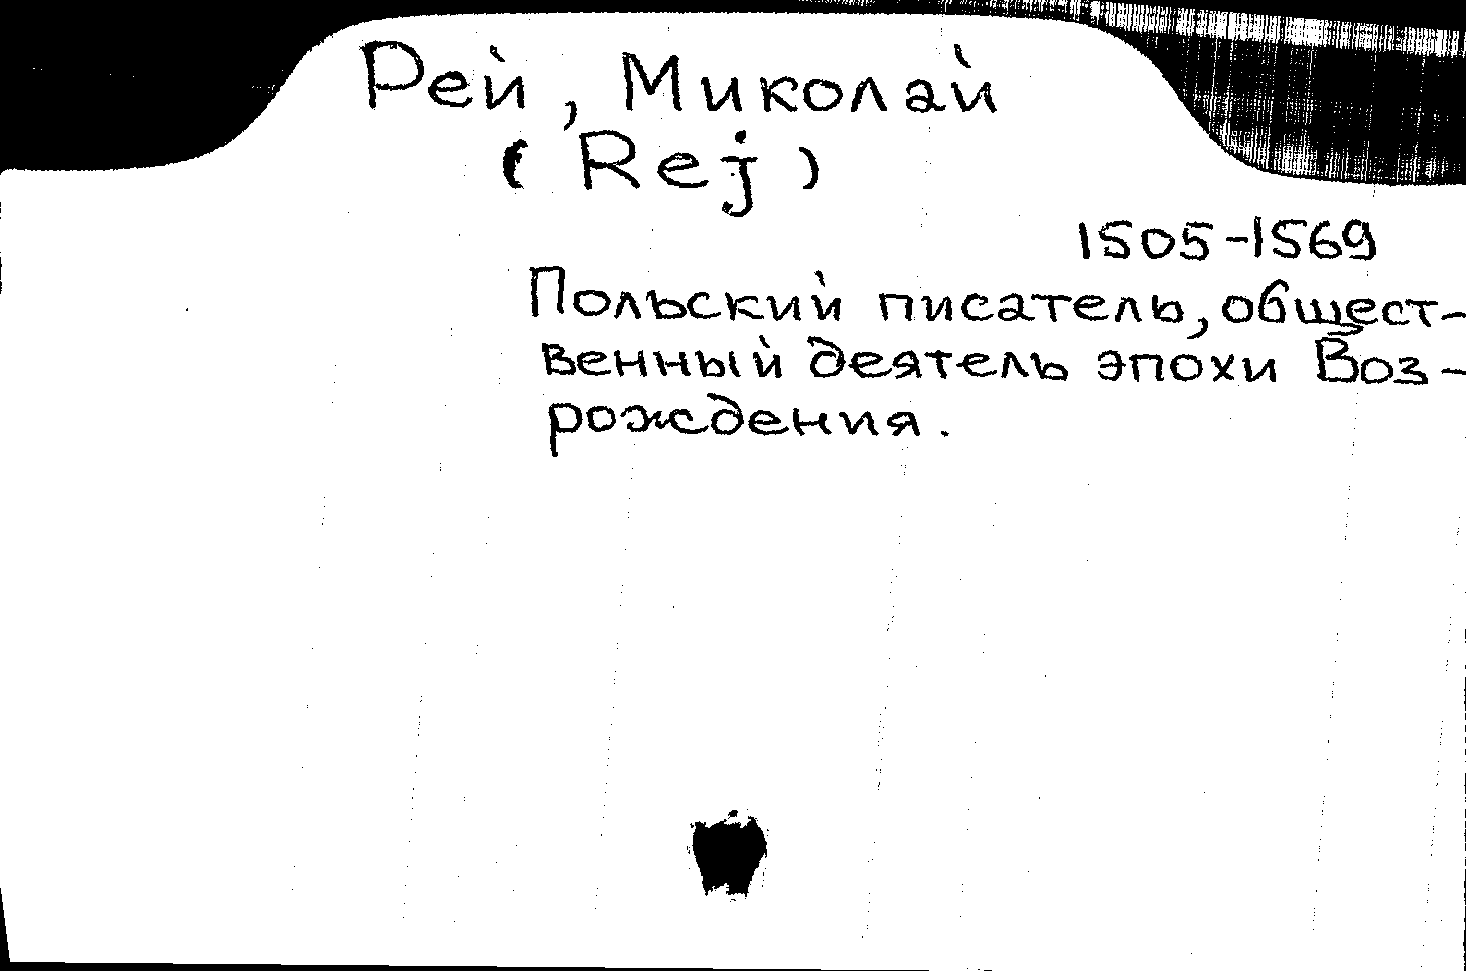 Рей, Миколай
(Rej)
1505-1569
Польский писатель, общест-
венный деятель эпохи Воз-
рождения.